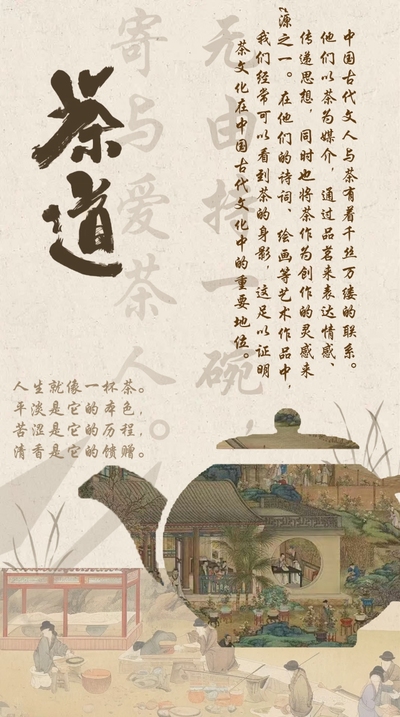 中国古代文人与茶有着千丝万缕的联系。
他们以茶为媒介，通过品茗来表达情感、
传递思想，同时也将茶作为创作的灵感来
源之一。在他们的诗词、绘画等艺术作品中，
我们经常可以看到茶的身影，这足以证明
茶文化在中国古代文化中的重要地位。
无由持一碗，
寄与爱茶人。
茶道
人生就像一杯茶。
平淡是它的本色，
苦涩是它的历程，
清香是它的馈赠。